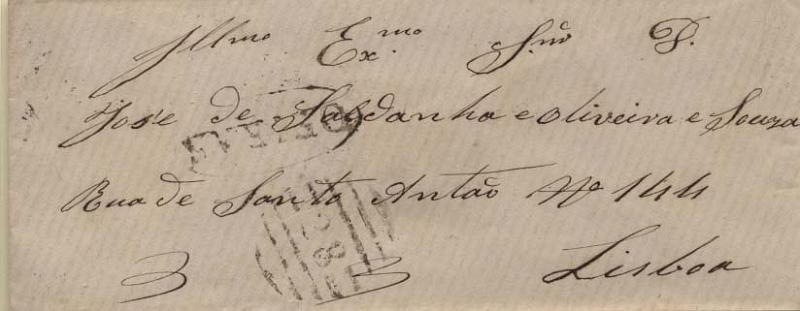 Illmo Exmo Snr D.
Jose de Saldanha e Oliveira e Souza
Rua de Santo Antão Nº 144
Lisboa